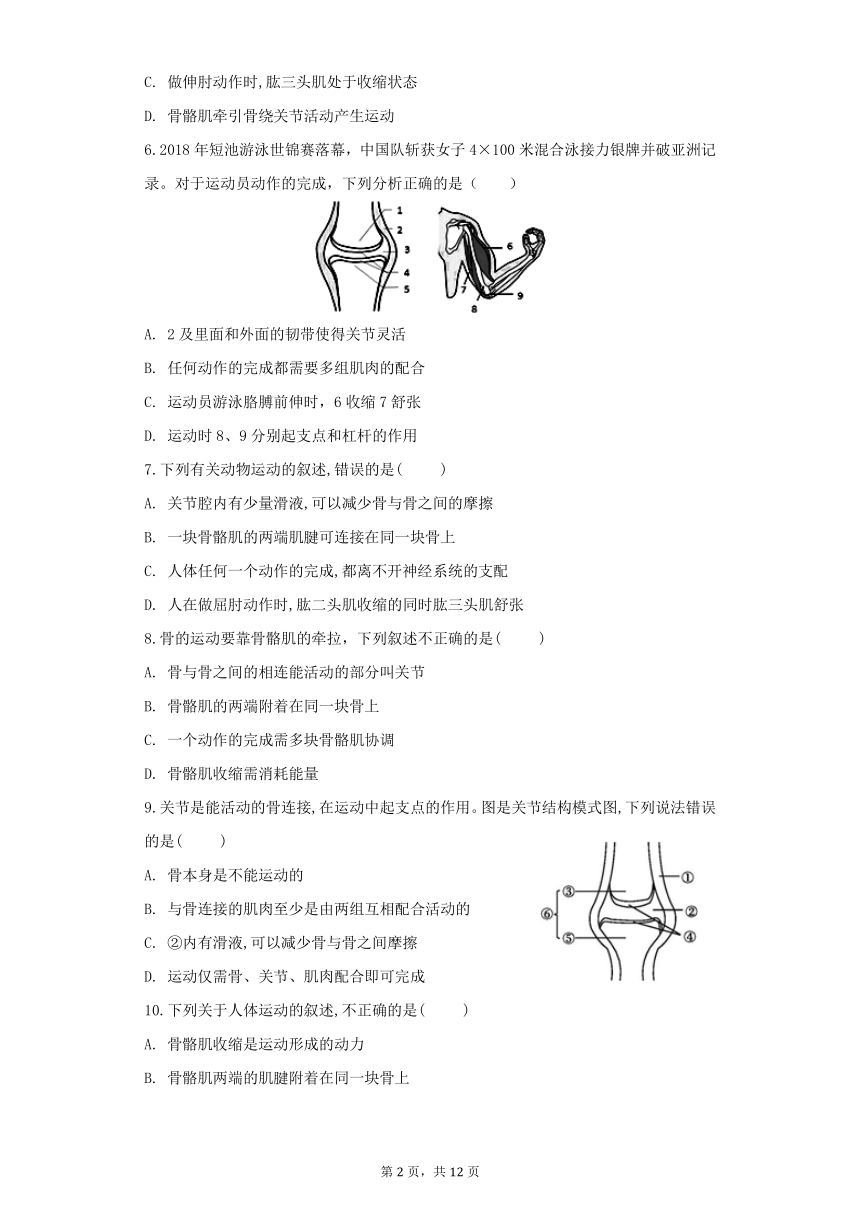 C. 做伸肘动作时,肱三头肌处于收缩状态
D. 骨骼肌牵引骨绕关节活动产生运动
6.2018年短池游泳世锦赛落幕，中国队斩获女子4×100米混合泳接力银牌并破亚洲记
录。对于运动员动作的完成，下列分析正确的是（ ）
1
2
3
4
5
6
7
8
9
A. 2及里面和外面的韧带使得关节灵活
B. 任何动作的完成都需要多组肌肉的配合
C. 运动员游泳胳膊前伸时，6收缩7舒张
D. 运动时8、9分别起支点和杠杆的作用
7.下列有关动物运动的叙述,错误的是( )
A. 关节腔内有少量滑液,可以减少骨与骨之间的摩擦
B. 一块骨骼肌的两端肌腱可连接在同一块骨上
C. 人体任何一个动作的完成,都离不开神经系统的支配
D. 人在做屈肘动作时,肱二头肌收缩的同时肱三头肌舒张
8.骨的运动要靠骨骼肌的牵拉，下列叙述不正确的是( )
A. 骨与骨之间的相连能活动的部分叫关节
B. 骨骼肌的两端附着在同一块骨上
C. 一个动作的完成需多块骨骼肌协调
D. 骨骼肌收缩需消耗能量
9.关节是能活动的骨连接,在运动中起支点的作用。图是关节结构模式图,下列说法错误
的是( )
A. 骨本身是不能运动的
B. 与骨连接的肌肉至少是由两组互相配合活动的
C. ②内有滑液,可以减少骨与骨之间摩擦
D. 运动仅需骨、关节、肌肉配合即可完成
①
③
②
⑥
⑤
④
10.下列关于人体运动的叙述,不正确的是( )
A. 骨骼肌收缩是运动形成的动力
B. 骨骼肌两端的肌腱附着在同一块骨上
第2页，共12页